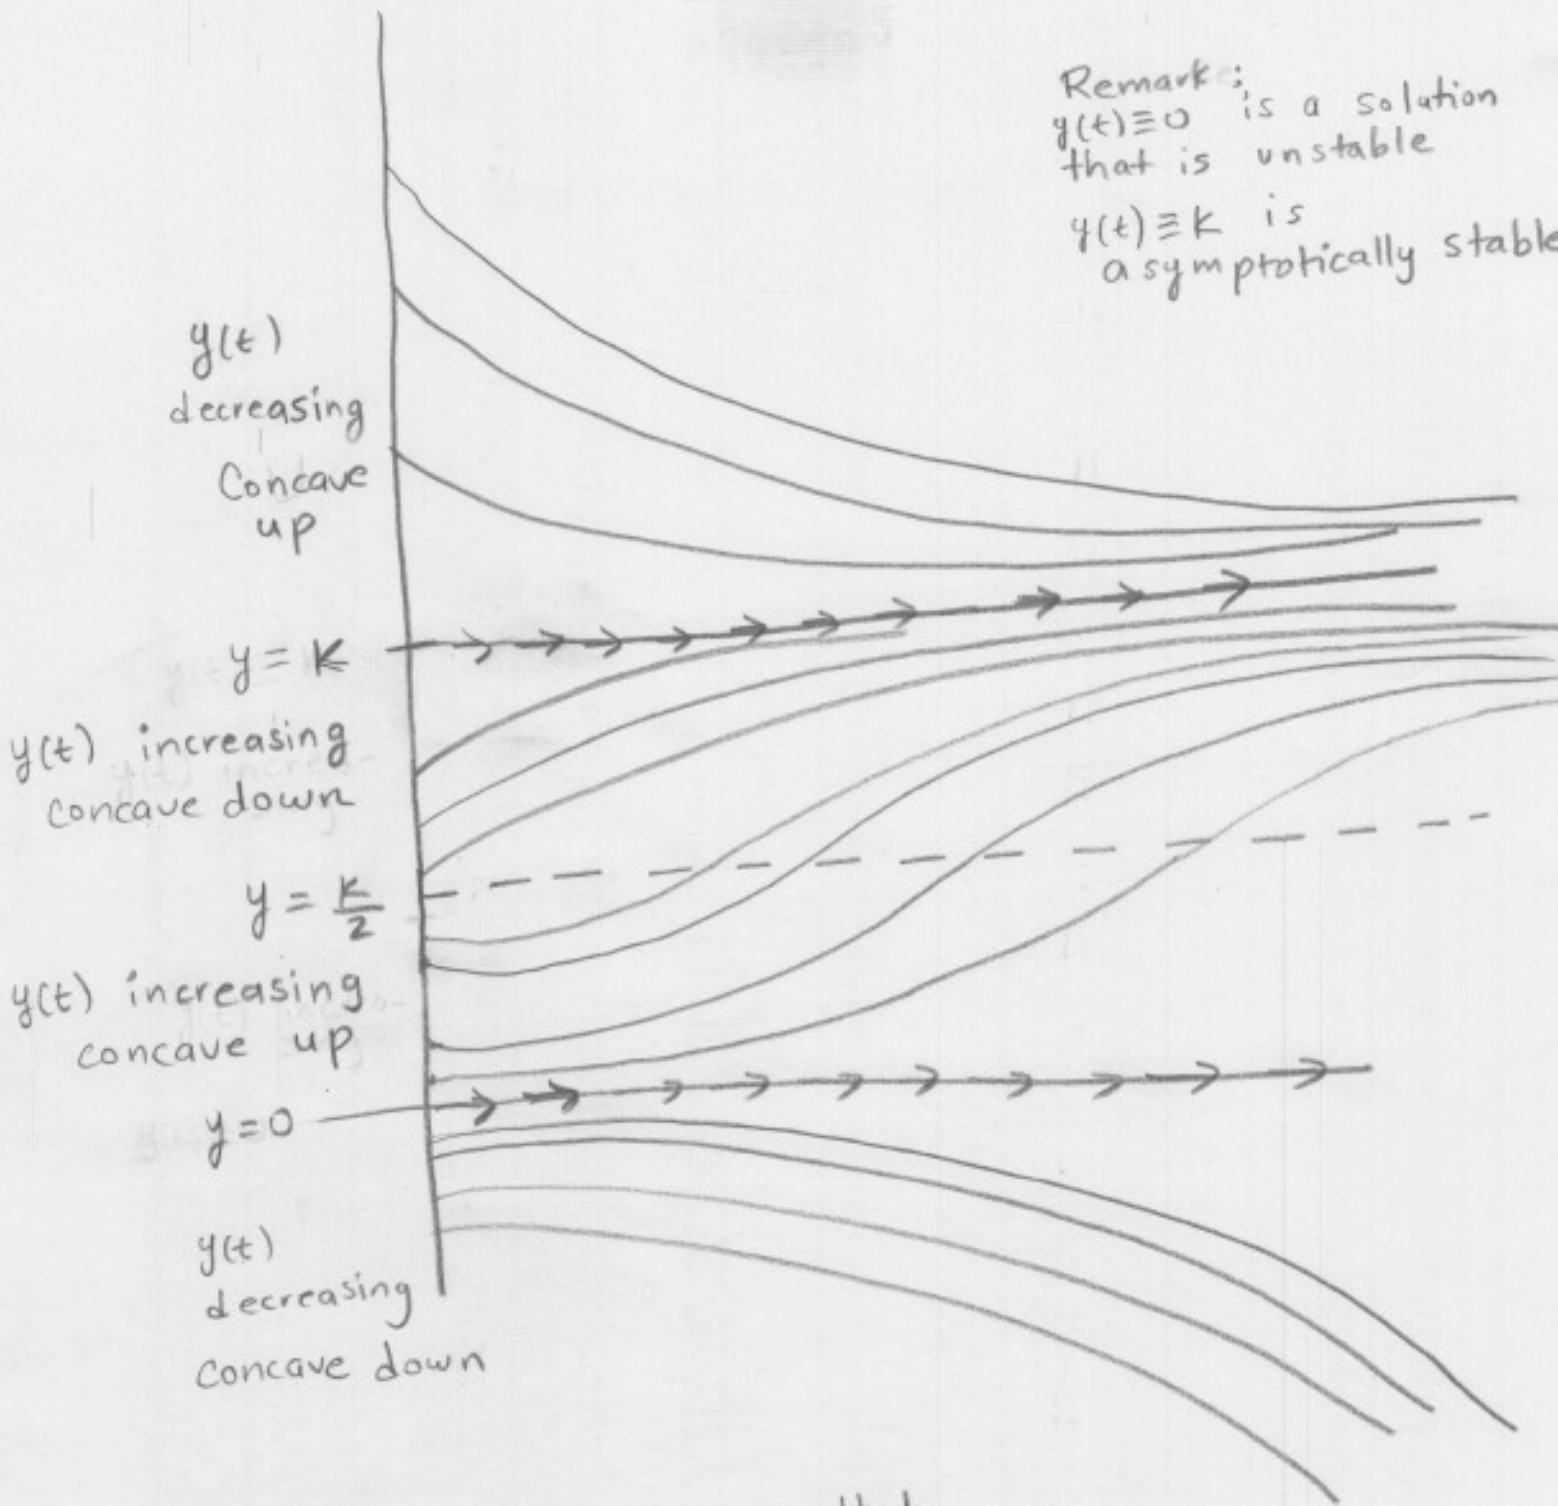 Remark:
y(t)≡0 is a solution
that is unstable
y(t)≡K is
asymptotically stable
y(t)
decreasing
Concave
up
y = K
y(t) increasing
concave down
y = K/2
y(t) increasing
concave up
y=0
y(t)
decreasing
concave down